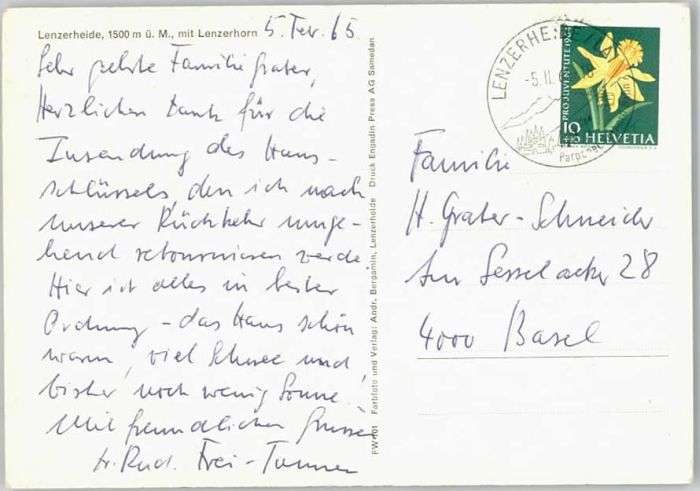 Lenzerheide, 1500 m ü. M., mit Lenzerhorn
5. Feb. 65
Sehr geehrte Familie Grater,
Herzlichen Dank für die
Zusendung des Haus-
schlüssels, den ich nach
unserer Rückkehr umge-
hend retournieren werde
Hier ist alles in bester
Ordnung – das Haus schön
warm, viel Schnee und
bisher noch wenig Sonne.
Mit freundlichen Grüssen
Rud. Frei-
FW Farbfoto und Verlag: Andr. Bergamin, Lenzerheide Druck Engadin Press AG Samedan
LENZERHEIDE
-5.II.
PRO JUVENTUTE
10
+10
HELVETIA
Familie
H. Grater-Schneider
Am Sesselacker 28
4000 Basel